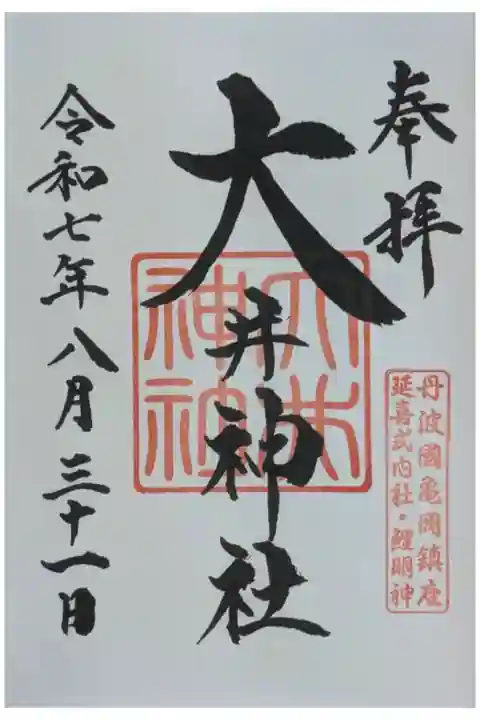 奉拝
丹波國亀岡鎮座
延喜式内社・鯉明神
大井神社
大井神社
令和七年八月三十一日